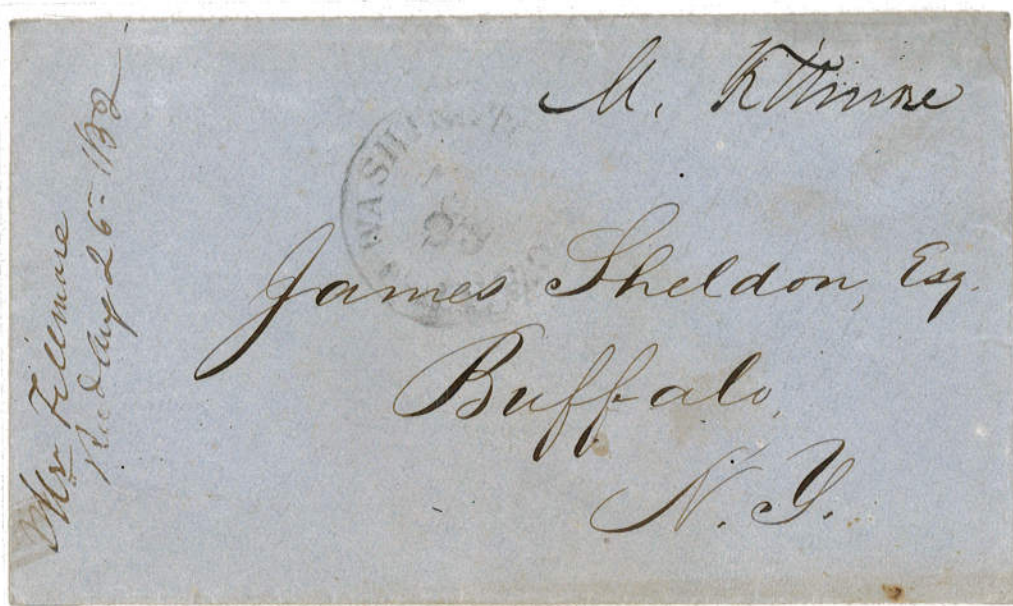 M. Fillmore
WASHINGTON
James Sheldon, Esq.
Buffalo,
N. Y.
Mr Fillmore
Aug 26